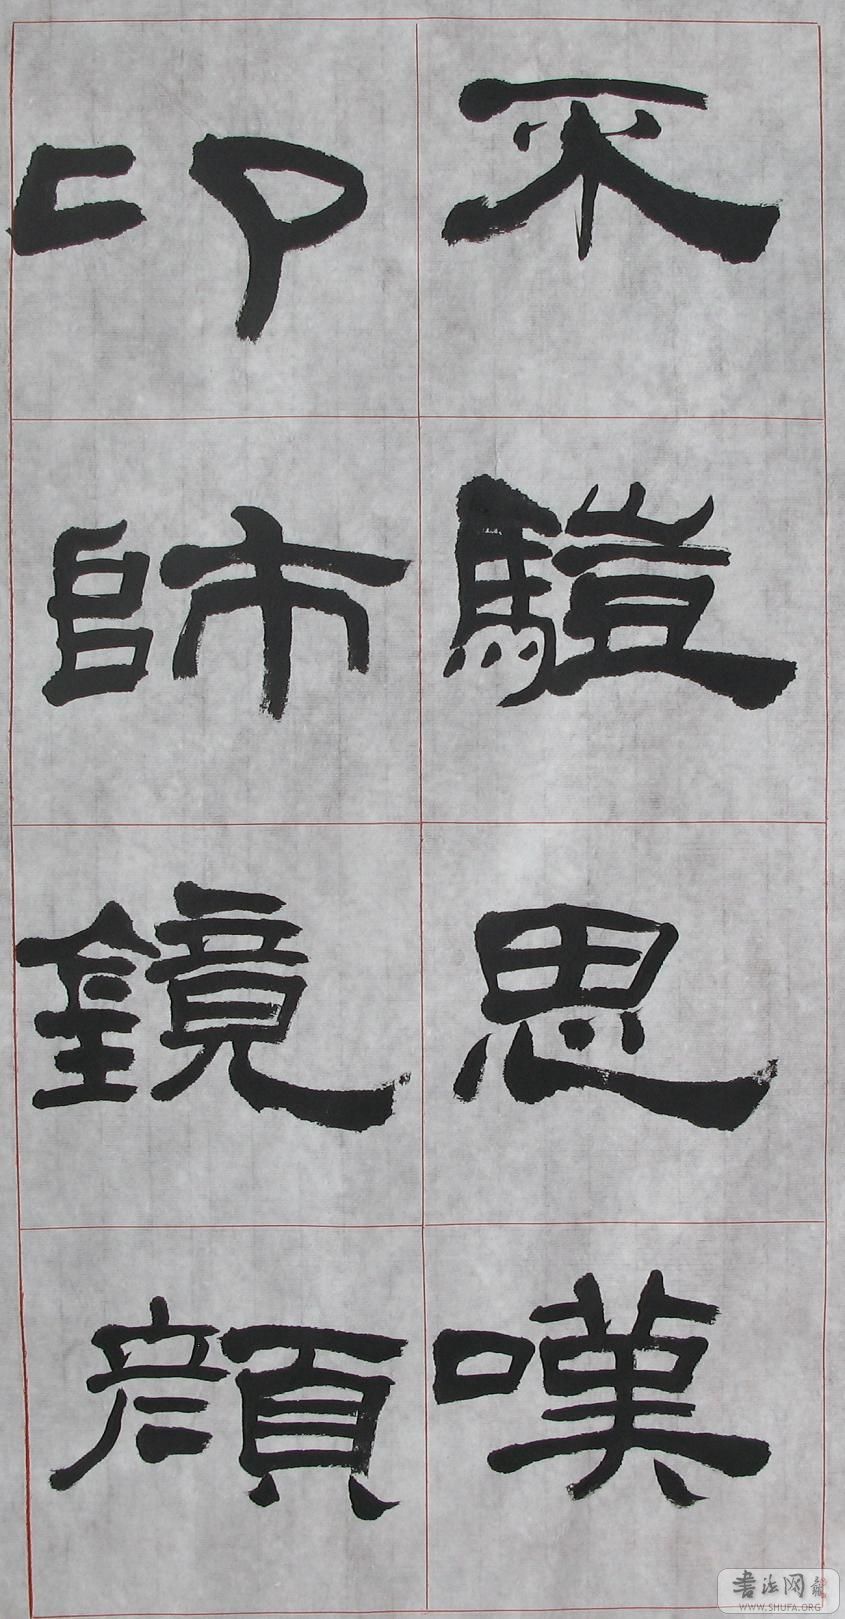 不騹思嘆
卬師鏡顏
書法网
WWW.SHUFA.ORG